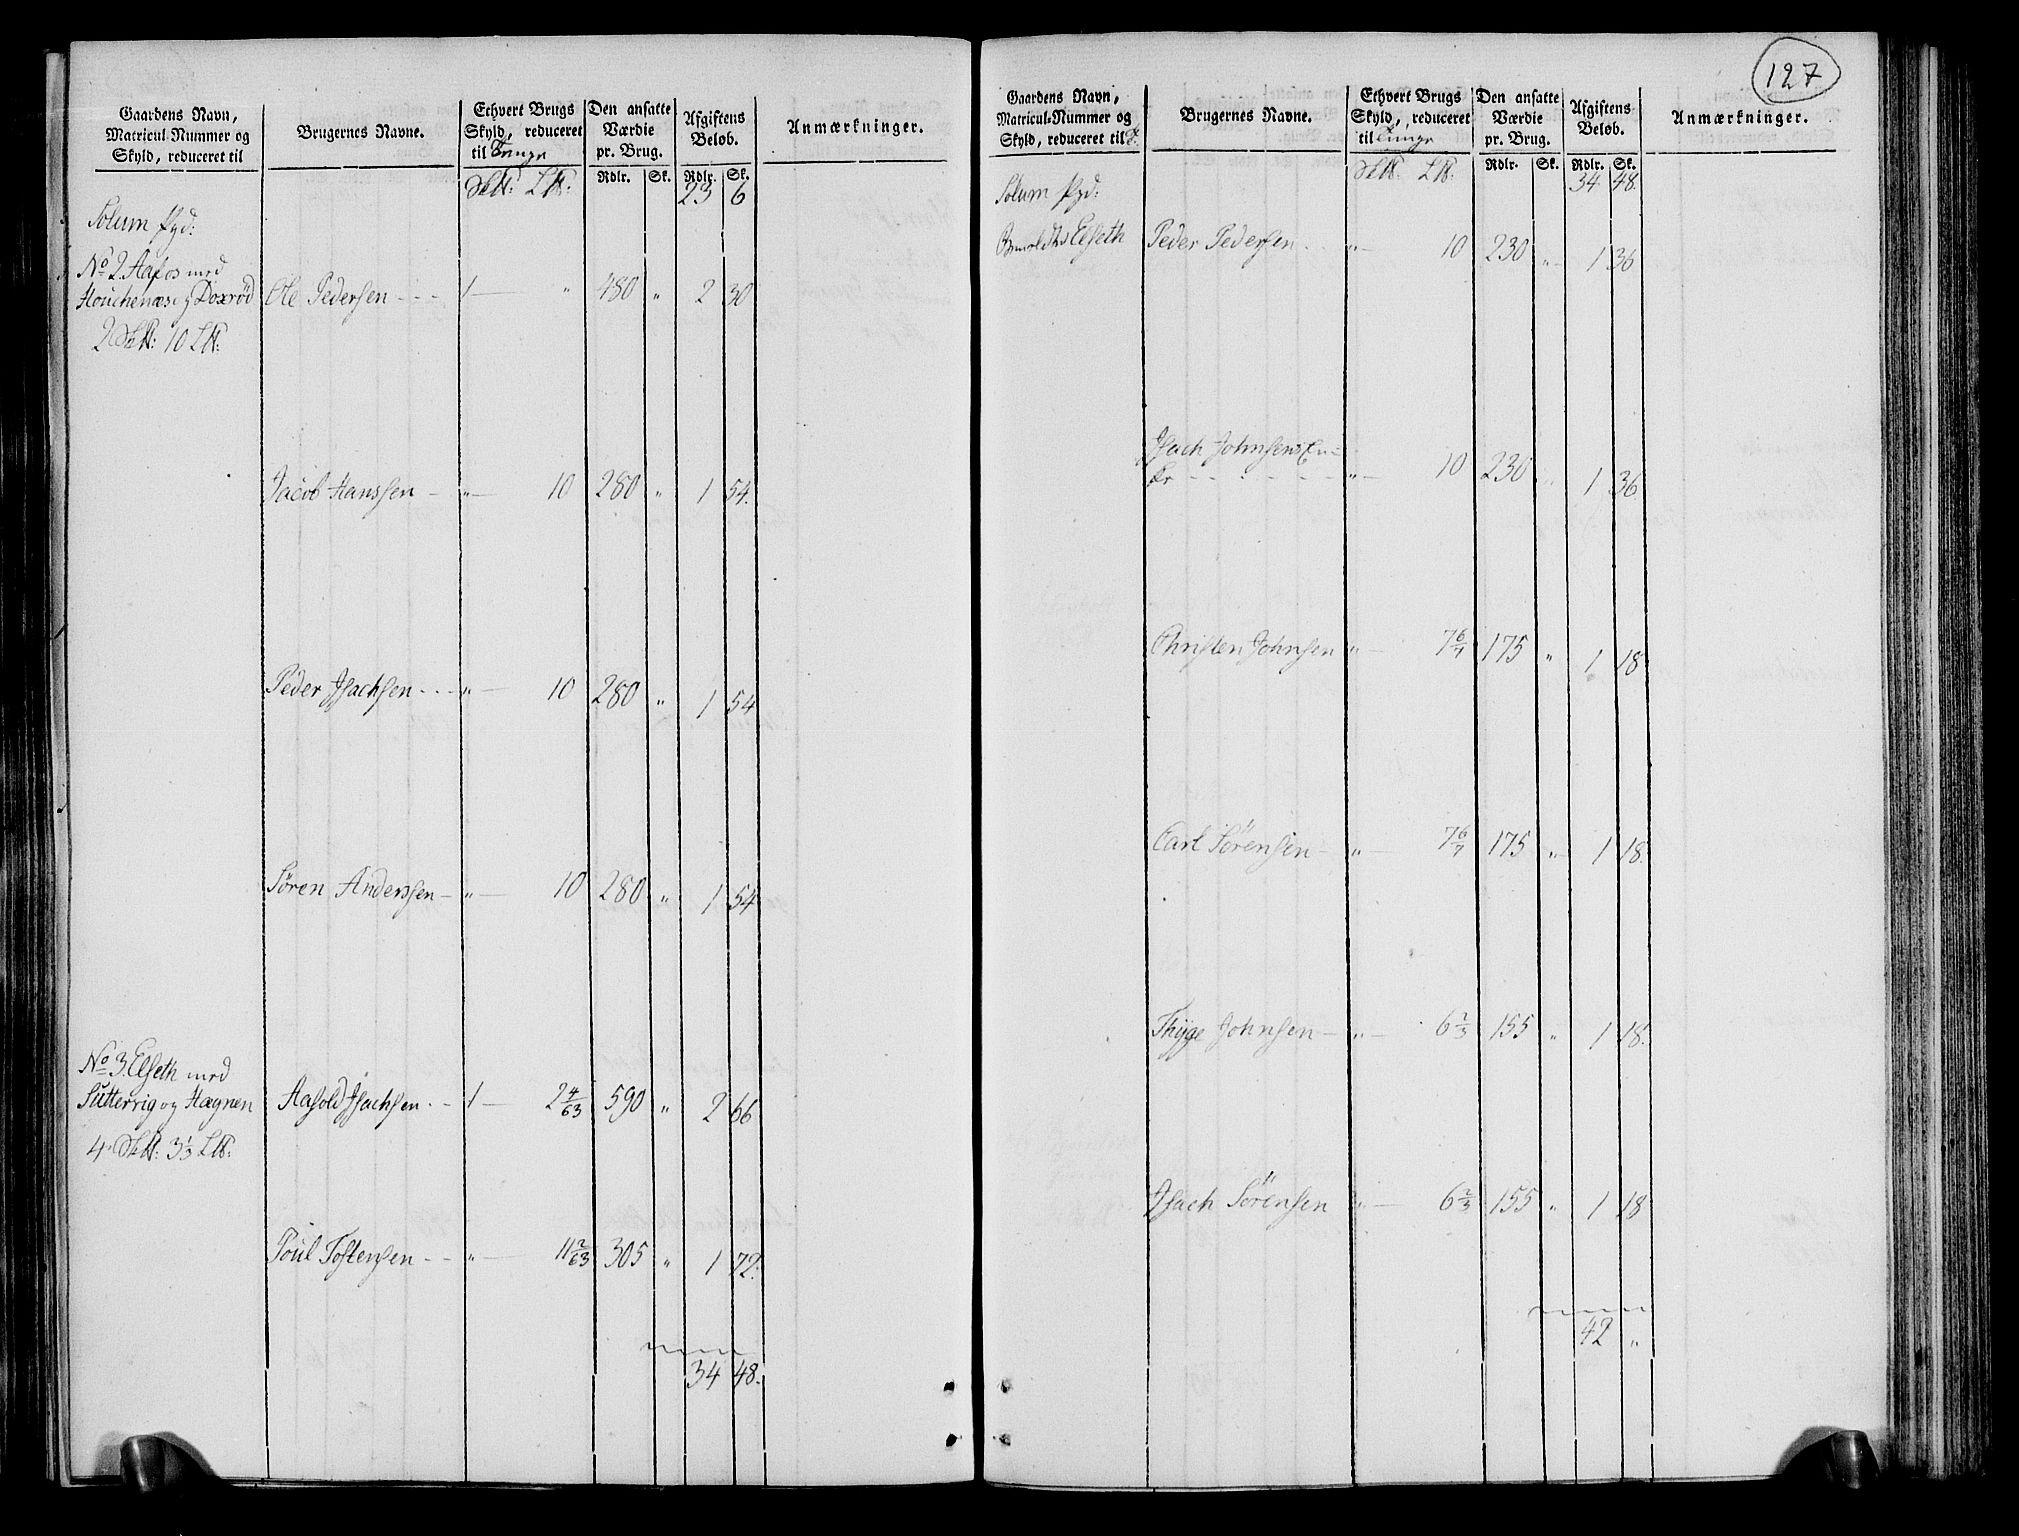 Gaardens Navn,
Matricul-Nummer og
Skyld, reduceret til
Brugernes Navne.
Ethvert Brugs
Skyld, reduceret
til Tunge
Den ansatte
Værdie
pr. Brug.
Afgiftens
Beløb.
Anmærkninger.
Rdlr. Sk. Rdlr. Sk.
23 6
Solum
No 2. Aafos med
Houchenæs og Doxrød Ole Pedersen 1 " 480 " 2 30
2 10
Jacob Hanssen " 10 280 " 1 54.
Peder Isachsen " 10 280 " 1 54
Søren Anderssen " 10 280 " 1 54
No 3. Elseth med
Sutterrig og Hægnen Aasold Isachsen 1 2 4/63 590 " 2 66
4 3 1/3
Poul Tostensen " 11 2/63 305 " 1 72.
34 48.
127
Gaardens Navn,
Matricul-Nummer og
Skyld, reduceret til T.
Brugernes Navne.
Ethvert Brugs
Skyld, reduceret
til Tunge
Den ansatte
Værdie
pr. Brug.
Afgiftens
Beløb.
Anmærkninger.
Rdlr. Sk. Rdlr. Sk.
34 48.
Solum
Elseth Peder Pedersen " 10 230 " 1 36
Isach Johnsens En-
ke " 10 230 " 1 36
Christen Johnsen " 7 6/7 175 " 1 18
Carl Sørensen " 7 6/7 175 " 1 18.
Thyge Johnsen " 6 2/3 155 " 1 18.
Isach Sørensen " 6 2/3 155 " 1 18
42 "